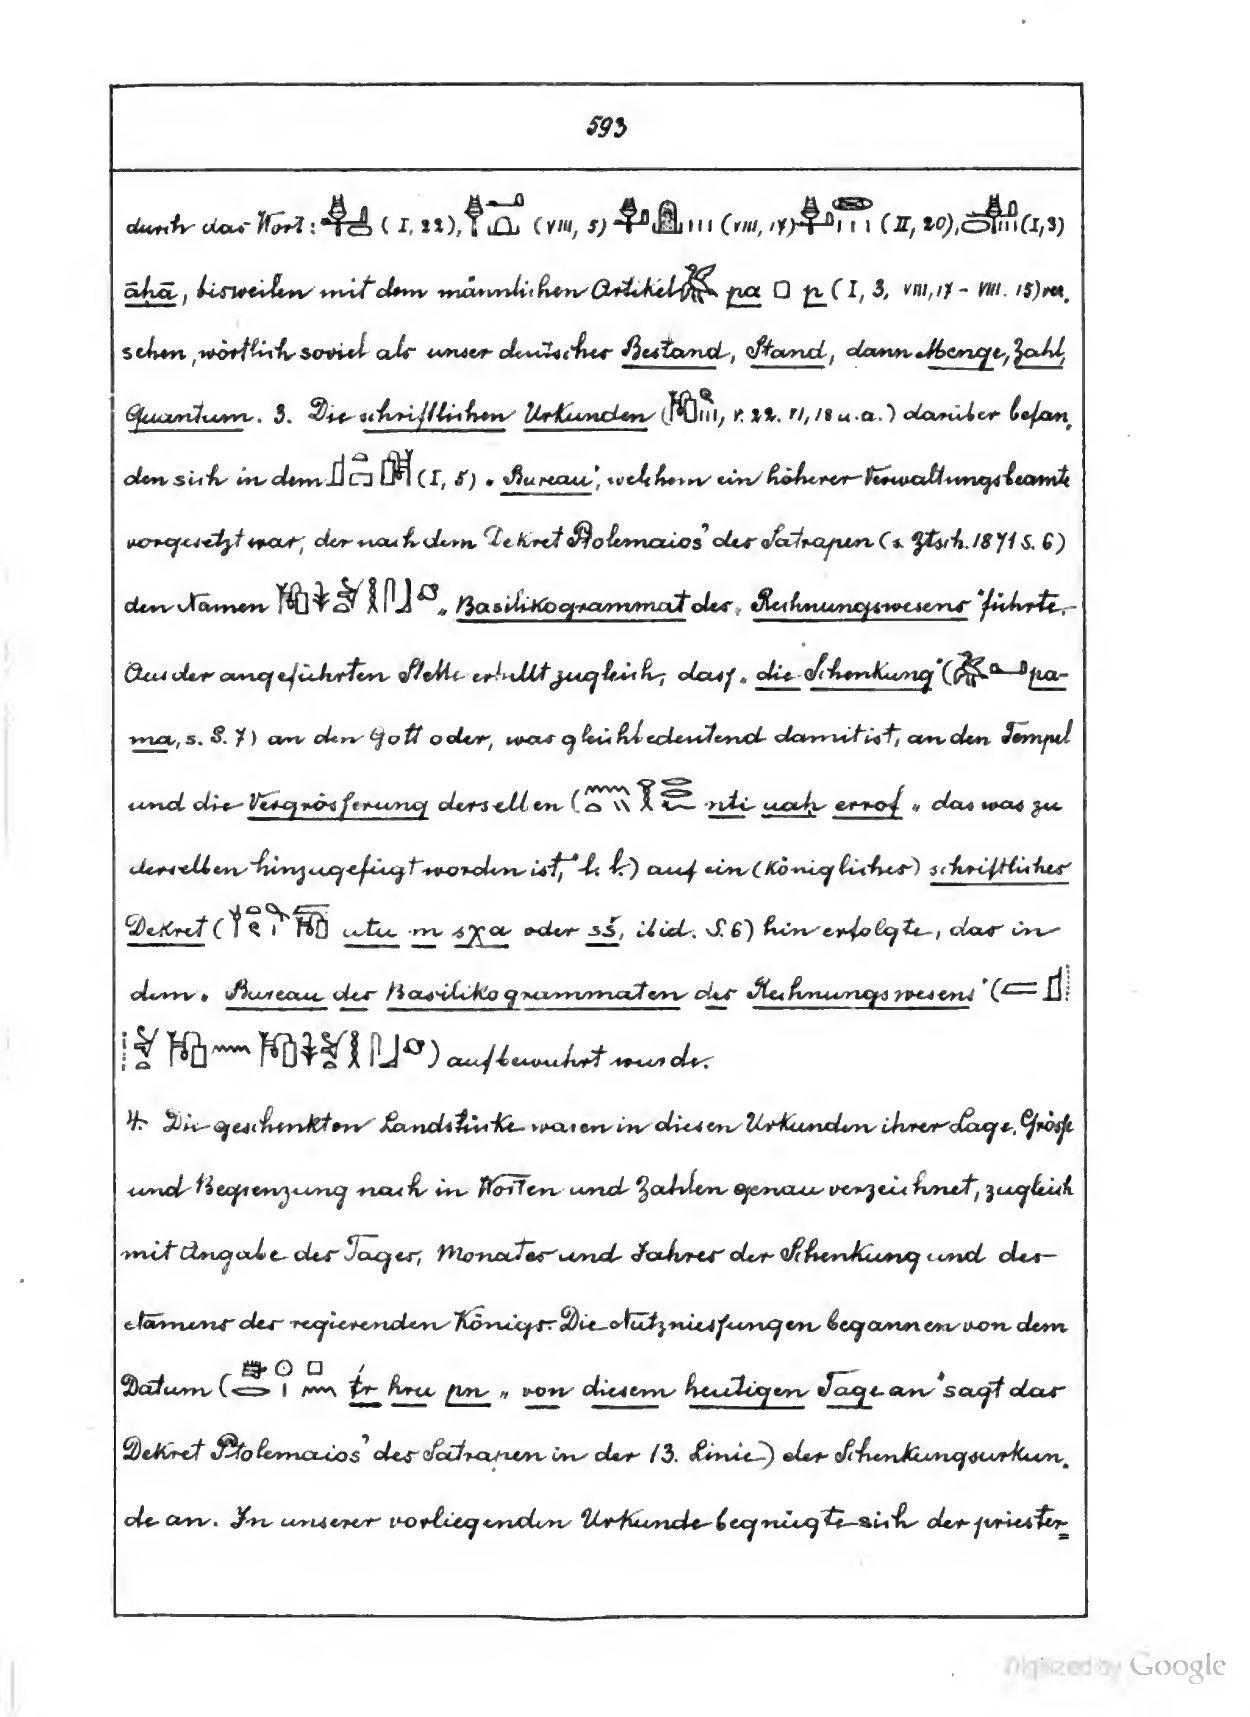 593
durch das Wort: (I, 22), (VIII, 5) (VIII, 17) (II, 20), (I, 3)
āḥā, bisweilen mit dem männlichen Artikel pa p (I, 3, VIII, 17 - VIII. 15) ver-
sehen, wörtlich soviel als unser deutsches Bestand, Stand, dann Menge, Zahl,
Quantum. 3. Die schriftlichen Urkunden (V. 22. VI, 18 u. a.) darüber befan-
den sich in dem (I, 5) „Bureau“, welchem ein höherer Verwaltungsbeamte
vorgesetzt war, der nach dem Dekret Ptolemaios' des Satrapen (s. Ztsch. 1871 S. 6)
den Namen „Basilikogrammat des Rechnungswesens“ führte.
Aus der angeführten Stelle erhellt zugleich, dass „die Schenkung“ (pa-
ma, s. S. 7) an den Gott oder, was gleichbedeutend damit ist, an den Tempel
und die Vergrösserung derselben (nti uaḥ errof „das was zu
derselben hinzugefügt worden ist,“ l. l.) auf ein (königliches) schriftliches
Dekret (utu m sχa oder sš, ibid. S. 6) hin erfolgte, das in
dem „Bureau des Basilikogrammaten des Rechnungswesens“ (
) aufbewahrt wurde.
4. Die geschenkten Landstücke waren in diesen Urkunden ihrer Lage, Grösse
und Begrenzung nach in Worten und Zahlen genau verzeichnet, zugleich
mit Angabe des Tages, Monates und Jahres der Schenkung und des
Namens des regierenden Königs. Die Nutzniessungen begannen von dem
Datum (ṫr hru pn „von diesem heutigen Tage an“ sagt das
Dekret Ptolemaios' des Satrapen in der 13. Linie) der Schenkungsurkun-
de an. In unserer vorliegenden Urkunde begnügte sich der priester=
Digitized by Google